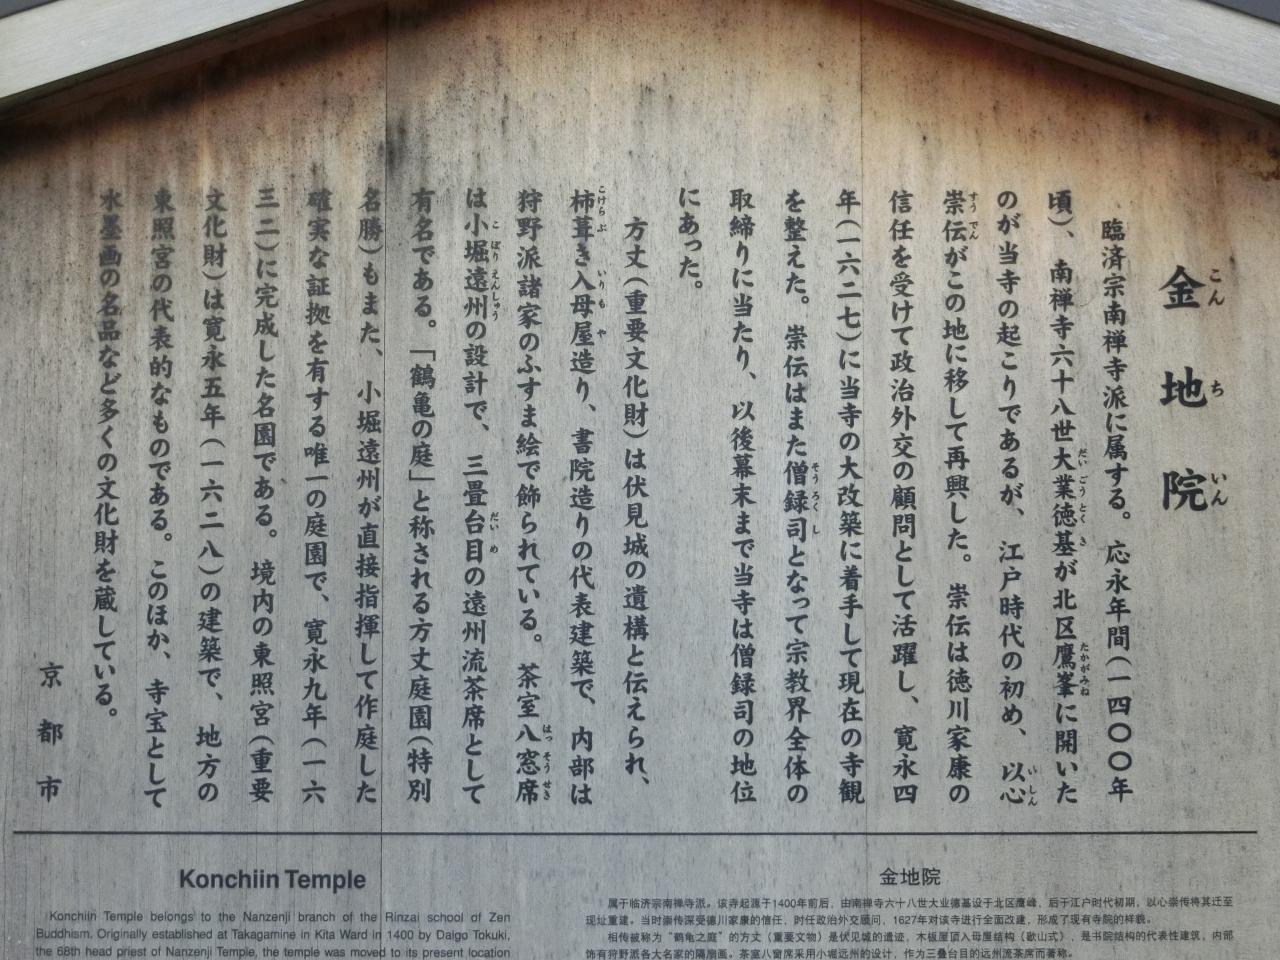 金地院
こんちいん
臨済宗南禅寺派に属する。応永年間(一四〇〇年
頃)、南禅寺六十八世大業徳基が北区鷹峯に開いた
のが当寺の起こりであるが、江戸時代の初め、以心
崇伝がこの地に移して再興した。崇伝は徳川家康の
信任を受けて政治外交の顧問として活躍し、寛永四
年(一六二七)に当寺の大改築に着手して現在の寺観
を整えた。崇伝はまた僧録司となって宗教界全体の
取締りに当たり、以後幕末まで当寺は僧録司の地位
にあった。
方丈(重要文化財)は伏見城の遺構と伝えられ、
柿葺き入母屋造り、書院造りの代表建築で、内部は
狩野派諸家のふすま絵で飾られている。茶室八窓席
は小堀遠州の設計で、三畳台目の遠州流茶席として
有名である。「鶴亀の庭」と称される方丈庭園(特別
名勝)もまた、小堀遠州が直接指揮して作庭した
確実な証拠を有する唯一の庭園で、寛永九年(一六
三二)に完成した名園である。境内の東照宮(重要
文化財)は寛永五年(一六二八)の建築で、地方の
東照宮の代表的なものである。このほか、寺宝として
水墨画の名品など多くの文化財を蔵している。
京都市
Konchiin Temple
Konchiin Temple belongs to the Nanzenji branch of the Rinzai school of Zen
Buddhism. Originally established at Takagamine in Kita Ward in 1400 by Daigo Tokuki,
the 68th head priest of Nanzenji Temple, the temple was moved to its present location
金地院
属于临济宗南禅寺派。该寺起源于1400年前后，由南禅寺六十八世大业德基设于北区鹰峰，后于江户时代初期，以心崇传将其迁至
现址重建。当时崇传深受德川家康的信任，时任政治外交顾问，1627年对该寺进行全面改建，形成了现有寺院的样貌。
相传被称为“鹤龟之庭”的方丈（重要文物）是伏见城的遗迹，木板屋顶入母屋结构（歇山式），是书院结构的代表性建筑，内部
饰有狩野派各大名家的隔扇画。茶室八窗席采用小堀远州的设计，作为三叠台目的远州流茶席而著称。